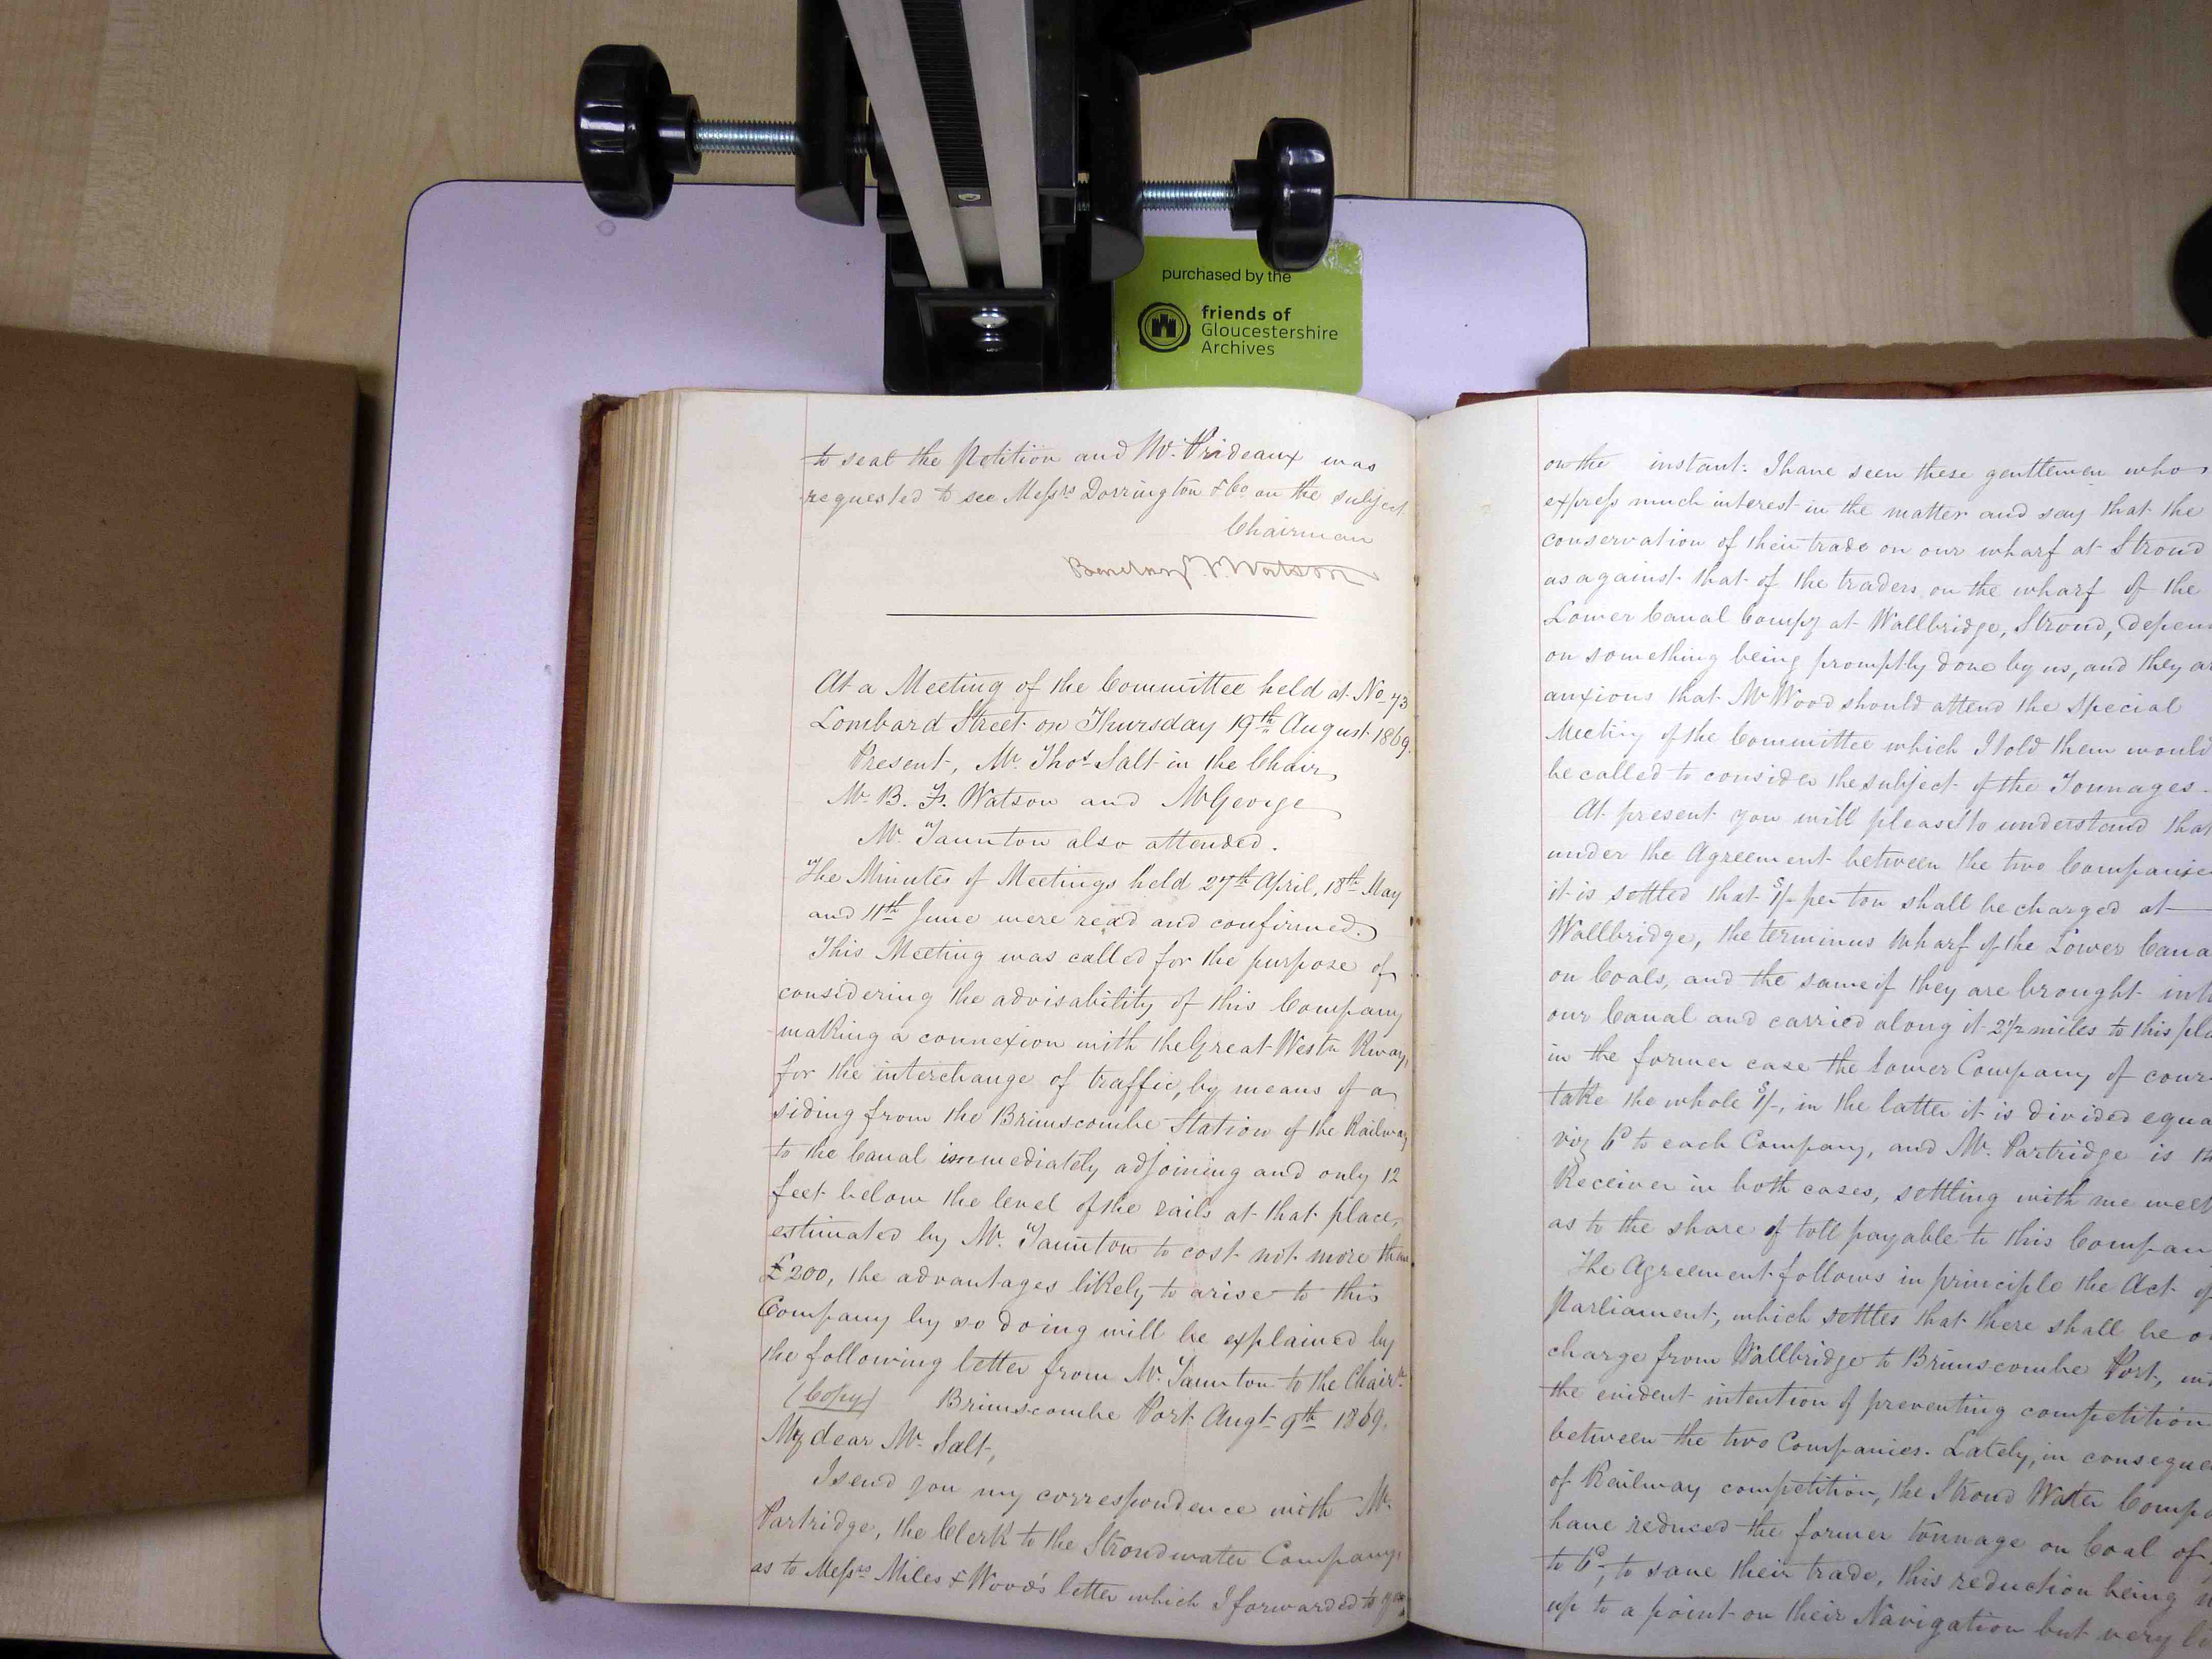 purchased by the
friends of
Gloucestershire
Archives
to seal the Petition and Mr. Prideaux was
requested to see Messrs Dorrington & Co on the subject
Chairman
Watson
At a Meeting of the Committee held at No 73
Lombard Street on Thursday 19th August 1869.
Present, Mr. Thos. Salt in the Chair,
Mr. B. F. Watson and Mr George
Mr. Taunton also attended.
The Minutes of Meetings held 27th April, 18th May
and 11th June were read and confirmed.
This Meeting was called for the purpose of
considering the advisability of this Company
making a connexion with the Great Westn Rway,
for the interchange of traffic, by means of a
siding from the Brimscombe Station of the Railway
to the Canal immediately adjoining and only 12
feet below the level of the rails at that place,
estimated by Mr. Taunton to cost not more than
£200, the advantages likely to arise to this
Company by so doing will be explained by
the following letter from Mr. Taunton to the Chairn.
(Copy) Brimscombe Port Augt 9th 1869.
My dear Mr. Salt,
I send you my correspondence with Mr.
Partridge, the Clerk to the Stroudwater Company,
as to Messrs Miles & Wood's letter which I forwarded to you
on the instant. I have seen these gentlemen who
express much interest in the matter and say that the
conservation of their trade on our wharf at Stroud
as against that of the traders on the wharf of the
Lower Canal Compy at Wallbridge, Stroud, depen
on something being promptly done by us, and they ar
anxious that Mr Wood should attend the Special
Meeting of the Committee which I told them would
be called to consider the subject of the Tonnages.
At present you will please to understand that
under the Agreement between the two Companies
it is settled that 1/- per ton shall be charged at
Wallbridge, the terminus wharf of the Lower Cana
on Coals, and the same if they are brought into
our Canal and carried along it 2½ miles to this pla
in the former case the Lower Company of cour
take the whole 1/-, in the latter it is divided equa
viz 6d to each Company, and Mr. Partridge is th
Receiver in both cases, settling with me week
as to the share of toll payable to this Compan
The Agreement follows in principle the Act of
Parliament, which settles that there shall be o
charge from Wallbridge to Brimscombe Port, wi
the evident intention of preventing competition
between the two Companies. Lately, in conseque
of Railway competition, the Stroud Water Compa
have reduced the former tonnage on Coal of
to 6d, to save their trade, this reduction being
up to a point on their Navigation but very li